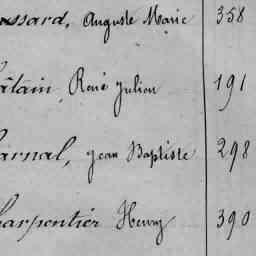 ossard, Auguste Marie 358
âtain, René Julien 191
arnal, Jean Baptiste 298
harpentier Henry 390